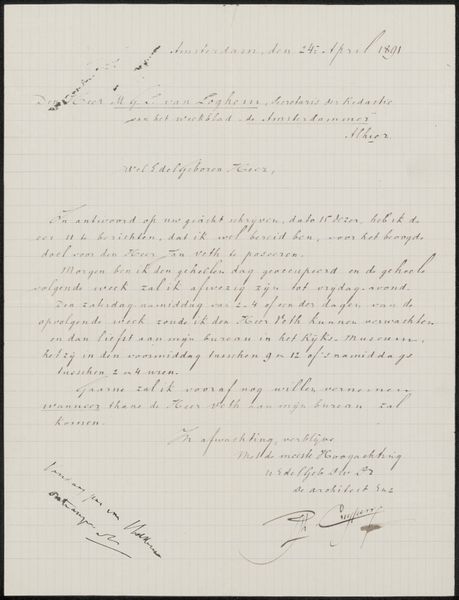 Amsterdam, den 24e April 1891
Den Heer M G L van Loghem, Secretaris der Redactie
van het weekblad de Amsterdammer
Alhier
WelEdelGeboren Heer,
In antwoord op uw geacht schrijven, dato 15 dezer, heb ik de
eer U te berichten, dat ik wel bereid ben, voor het beoogde
doel voor den Heer Jan Veth te poseeren.
Morgen ben ik den geheelen dag geoccupeerd en de geheele
volgende week zal ik afwezig zijn tot vrydag-avond.
Den zatusdag namiddag van 2-4 of een der dagen van de
opvolgende week zoude ik den Heer Veth kunnen verwachten
en dan liefst aan mijn bureau in het Rijks-Museum,
hetzij in den voormiddag tusschen 9 en 12 of 's namiddags
tusschen 2 en 4 uren.
Gaarne zal ik vooraf nog willen vernemen
wanneer thans de Heer Veth aan mijn bureau zal
komen.
In afwachting, verblijve
Met de meeste Hoogachting
UEdelGeb Dw Dr
De architect
Cuypers
van